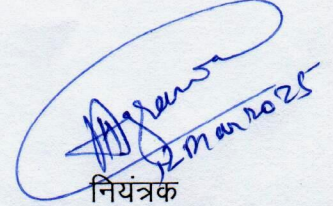 12 Mar 2025
नियंत्रक